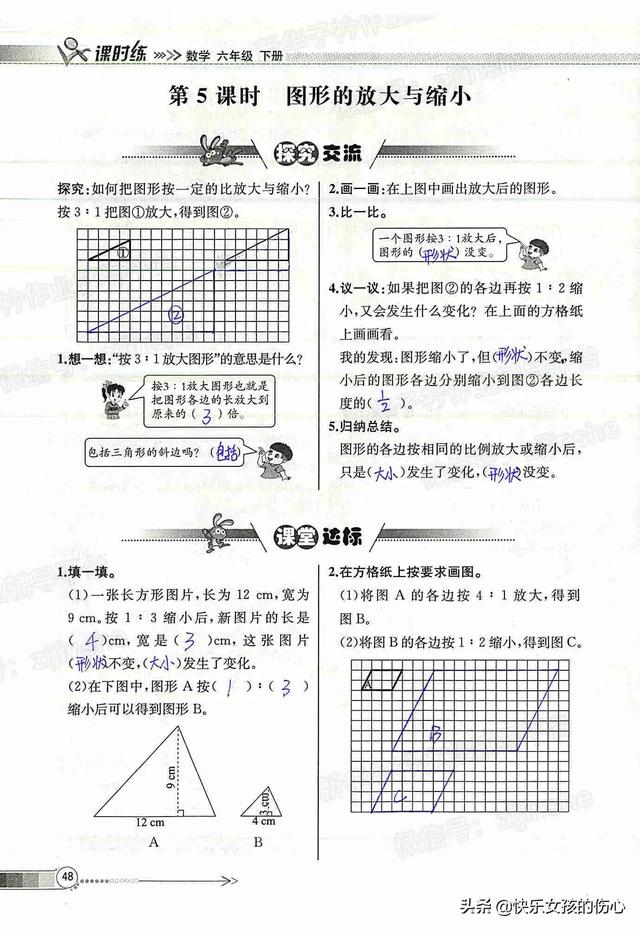 课时练 数学 六年级 下册
第5课时 图形的放大与缩小
探究交流
探究:如何把图形按一定的比放大与缩小?
按3∶1把图①放大,得到图②。
①
②
1.想一想:“按3∶1放大图形”的意思是什么?
按3∶1放大图形也就是
把图形各边的长放大到
原来的(3)倍。
包括三角形的斜边吗?(包括)
2.画一画:在上图中画出放大后的图形。
3.比一比。
一个图形按3∶1放大后,
图形的(形状)没变。
4.议一议:如果把图②的各边再按1∶2缩
小,又会发生什么变化?在上面的方格纸
上画画看。
我的发现:图形缩小了,但(形状)不变,缩
小后的图形各边分别缩小到图②各边长
度的(1/2)。
5.归纳总结。
图形的各边按相同的比例放大或缩小后,
只是(大小)发生了变化,(形状)没变。
课堂达标
1.填一填。
(1)一张长方形图片,长为12 cm,宽为
9 cm。按1∶3缩小后,新图片的长是
(4)cm,宽是(3)cm,这张图片
(形状)不变,(大小)发生了变化。
(2)在下图中,图形A按(1)∶(3)
缩小后可以得到图形B。
9 cm
12 cm
A
3 cm
4 cm
B
2.在方格纸上按要求画图。
(1)将图A的各边按4∶1放大,得到
图B。
(2)将图B的各边按1∶2缩小,得到图C。
A
B
C
48
头条@快乐女孩的伤心